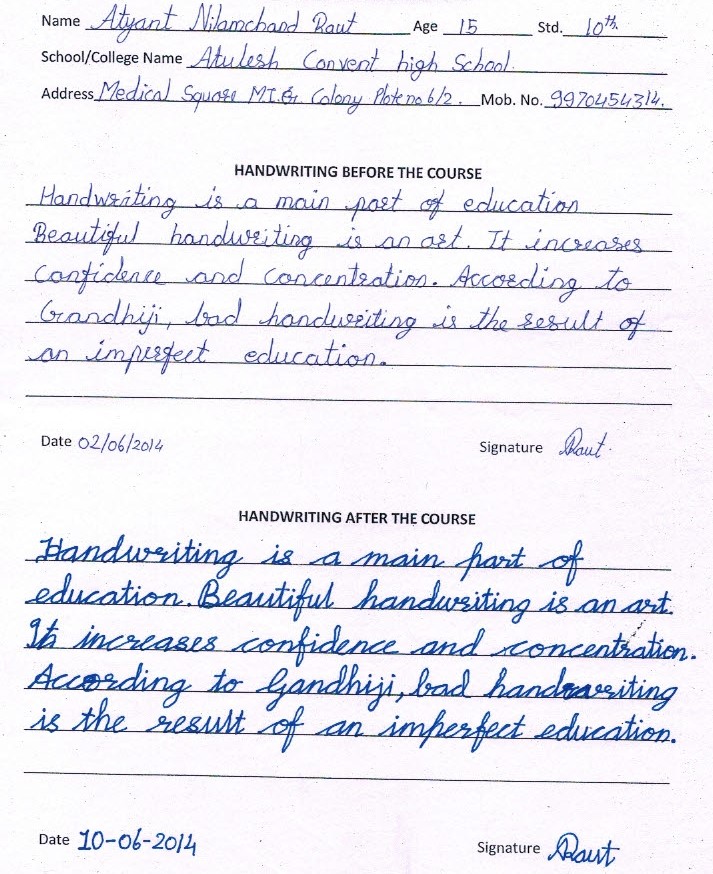 Name Atyant Nilamchand Raut Age 15 Std. 10th
School/College Name Atulesh Convent high School.
Address Medical Square M.I.G. Colony Plote no 6/2. Mob. No. 9970454314.
HANDWRITING BEFORE THE COURSE
Handwriting is a main part of education
Beautiful handwriting is an art. It increases
Confidence and Concentration. According to
Gandhiji, bad handwriting is the result of
an imperfect education.
Date 02/06/2014 Signature Raut
HANDWRITING AFTER THE COURSE
Handwriting is a main part of
education. Beautiful handwriting is an art.
It increases confidence and concentration.
According to Gandhiji, bad handwriting
is the result of an imperfect education.
Date 10-06-2014 Signature Raut